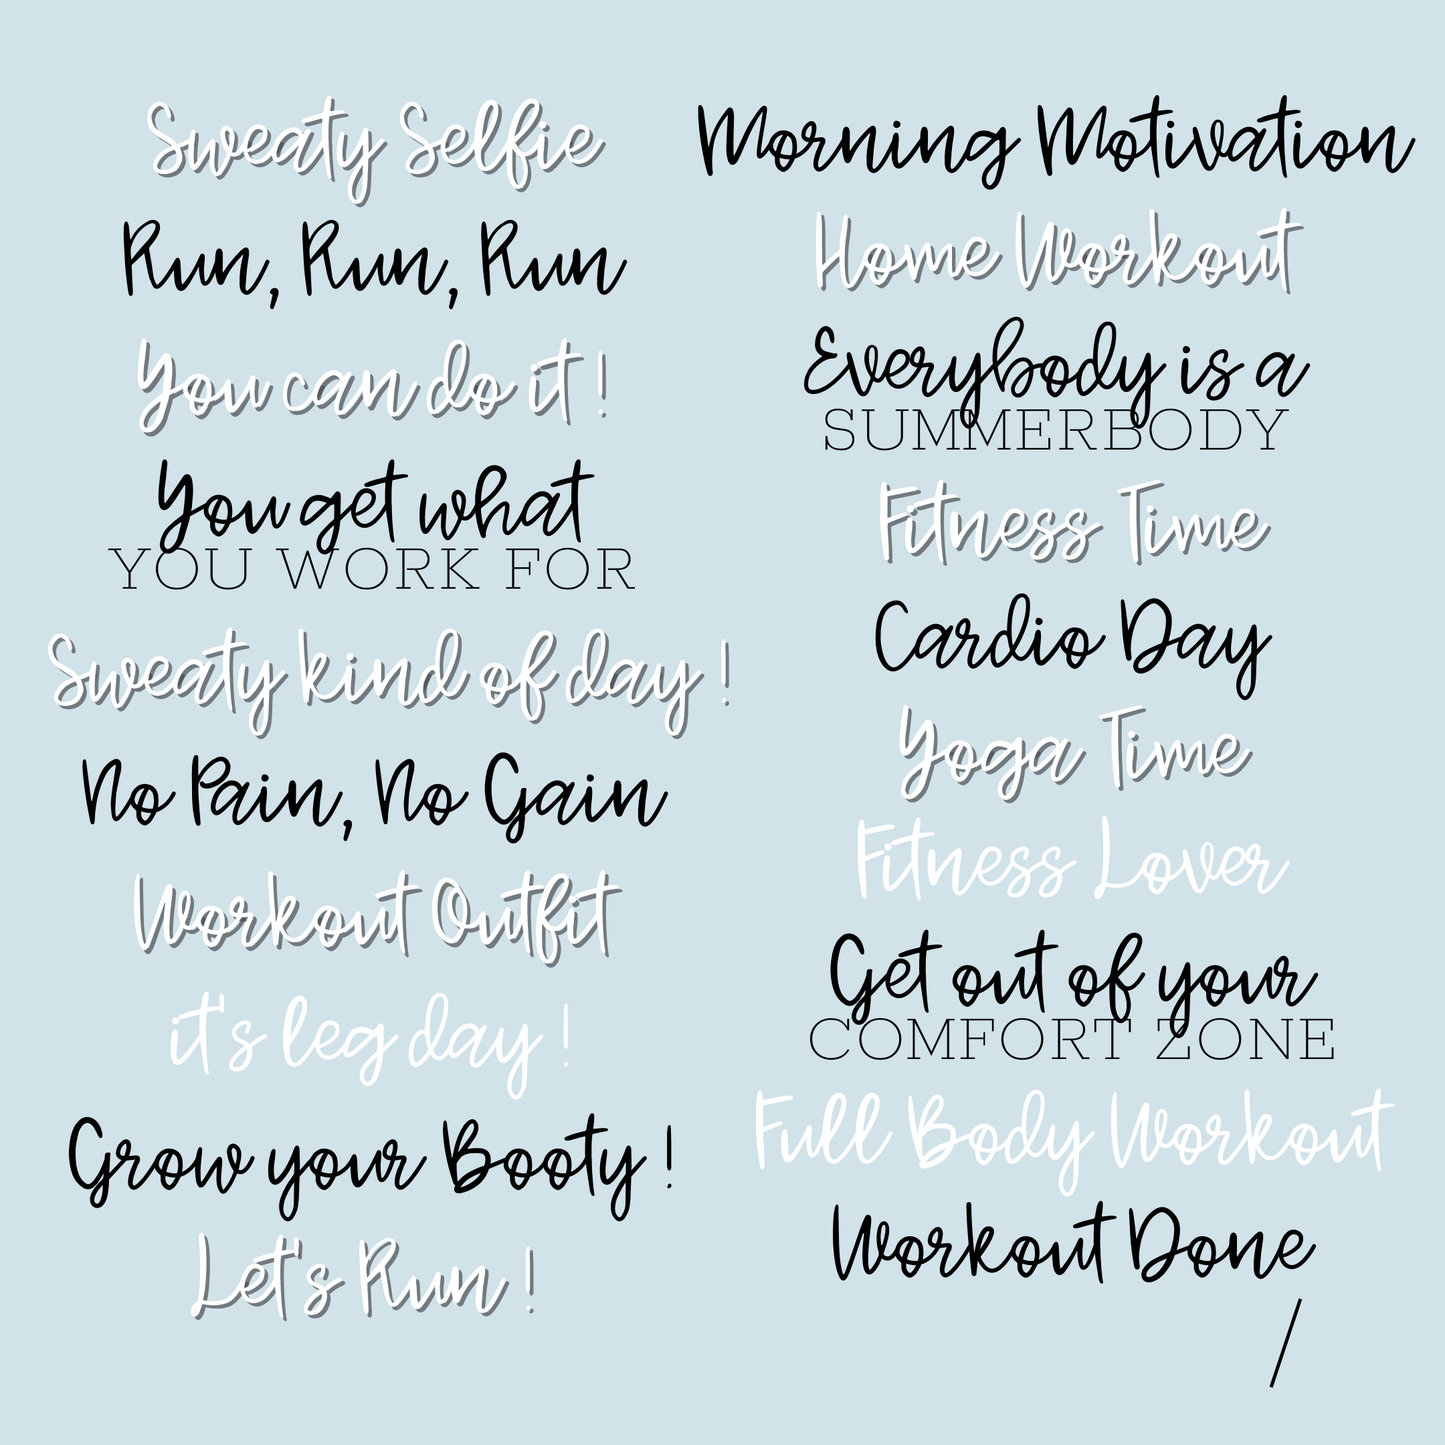 Sweaty Selfie
Run, Run, Run
You can do it !
You get what
YOU WORK FOR
Sweaty kind of day !
No Pain, No Gain
Workout Outfit
it's leg day !
Grow your Booty !
Let's Run !
Morning Motivation
Home Workout
Everybody is a
SUMMERBODY
Fitness Time
Cardio Day
Yoga Time
Fitness Lover
Get out of your
COMFORT ZONE
Full Body Workout
Workout Done
/